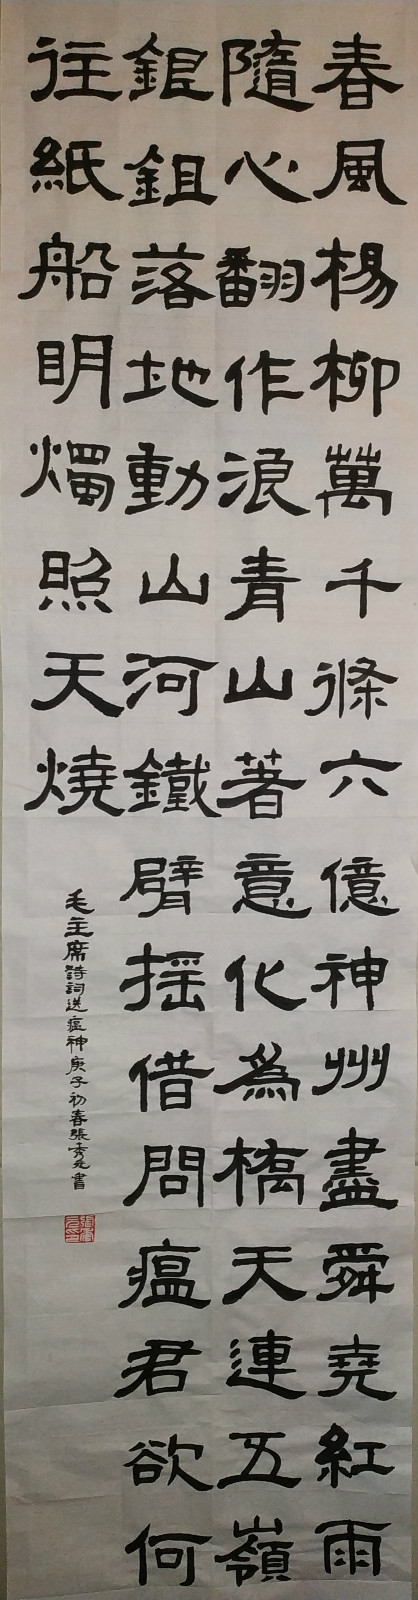 春風楊柳萬千條六億神州盡舜堯紅雨
隨心翻作浪青山著意化為橋天連五嶺
銀鉏落地動山河鐵臂搖借問瘟君欲何
往紙船明燭照天燒
毛主席詩詞送瘟神庚子初春張秀元書